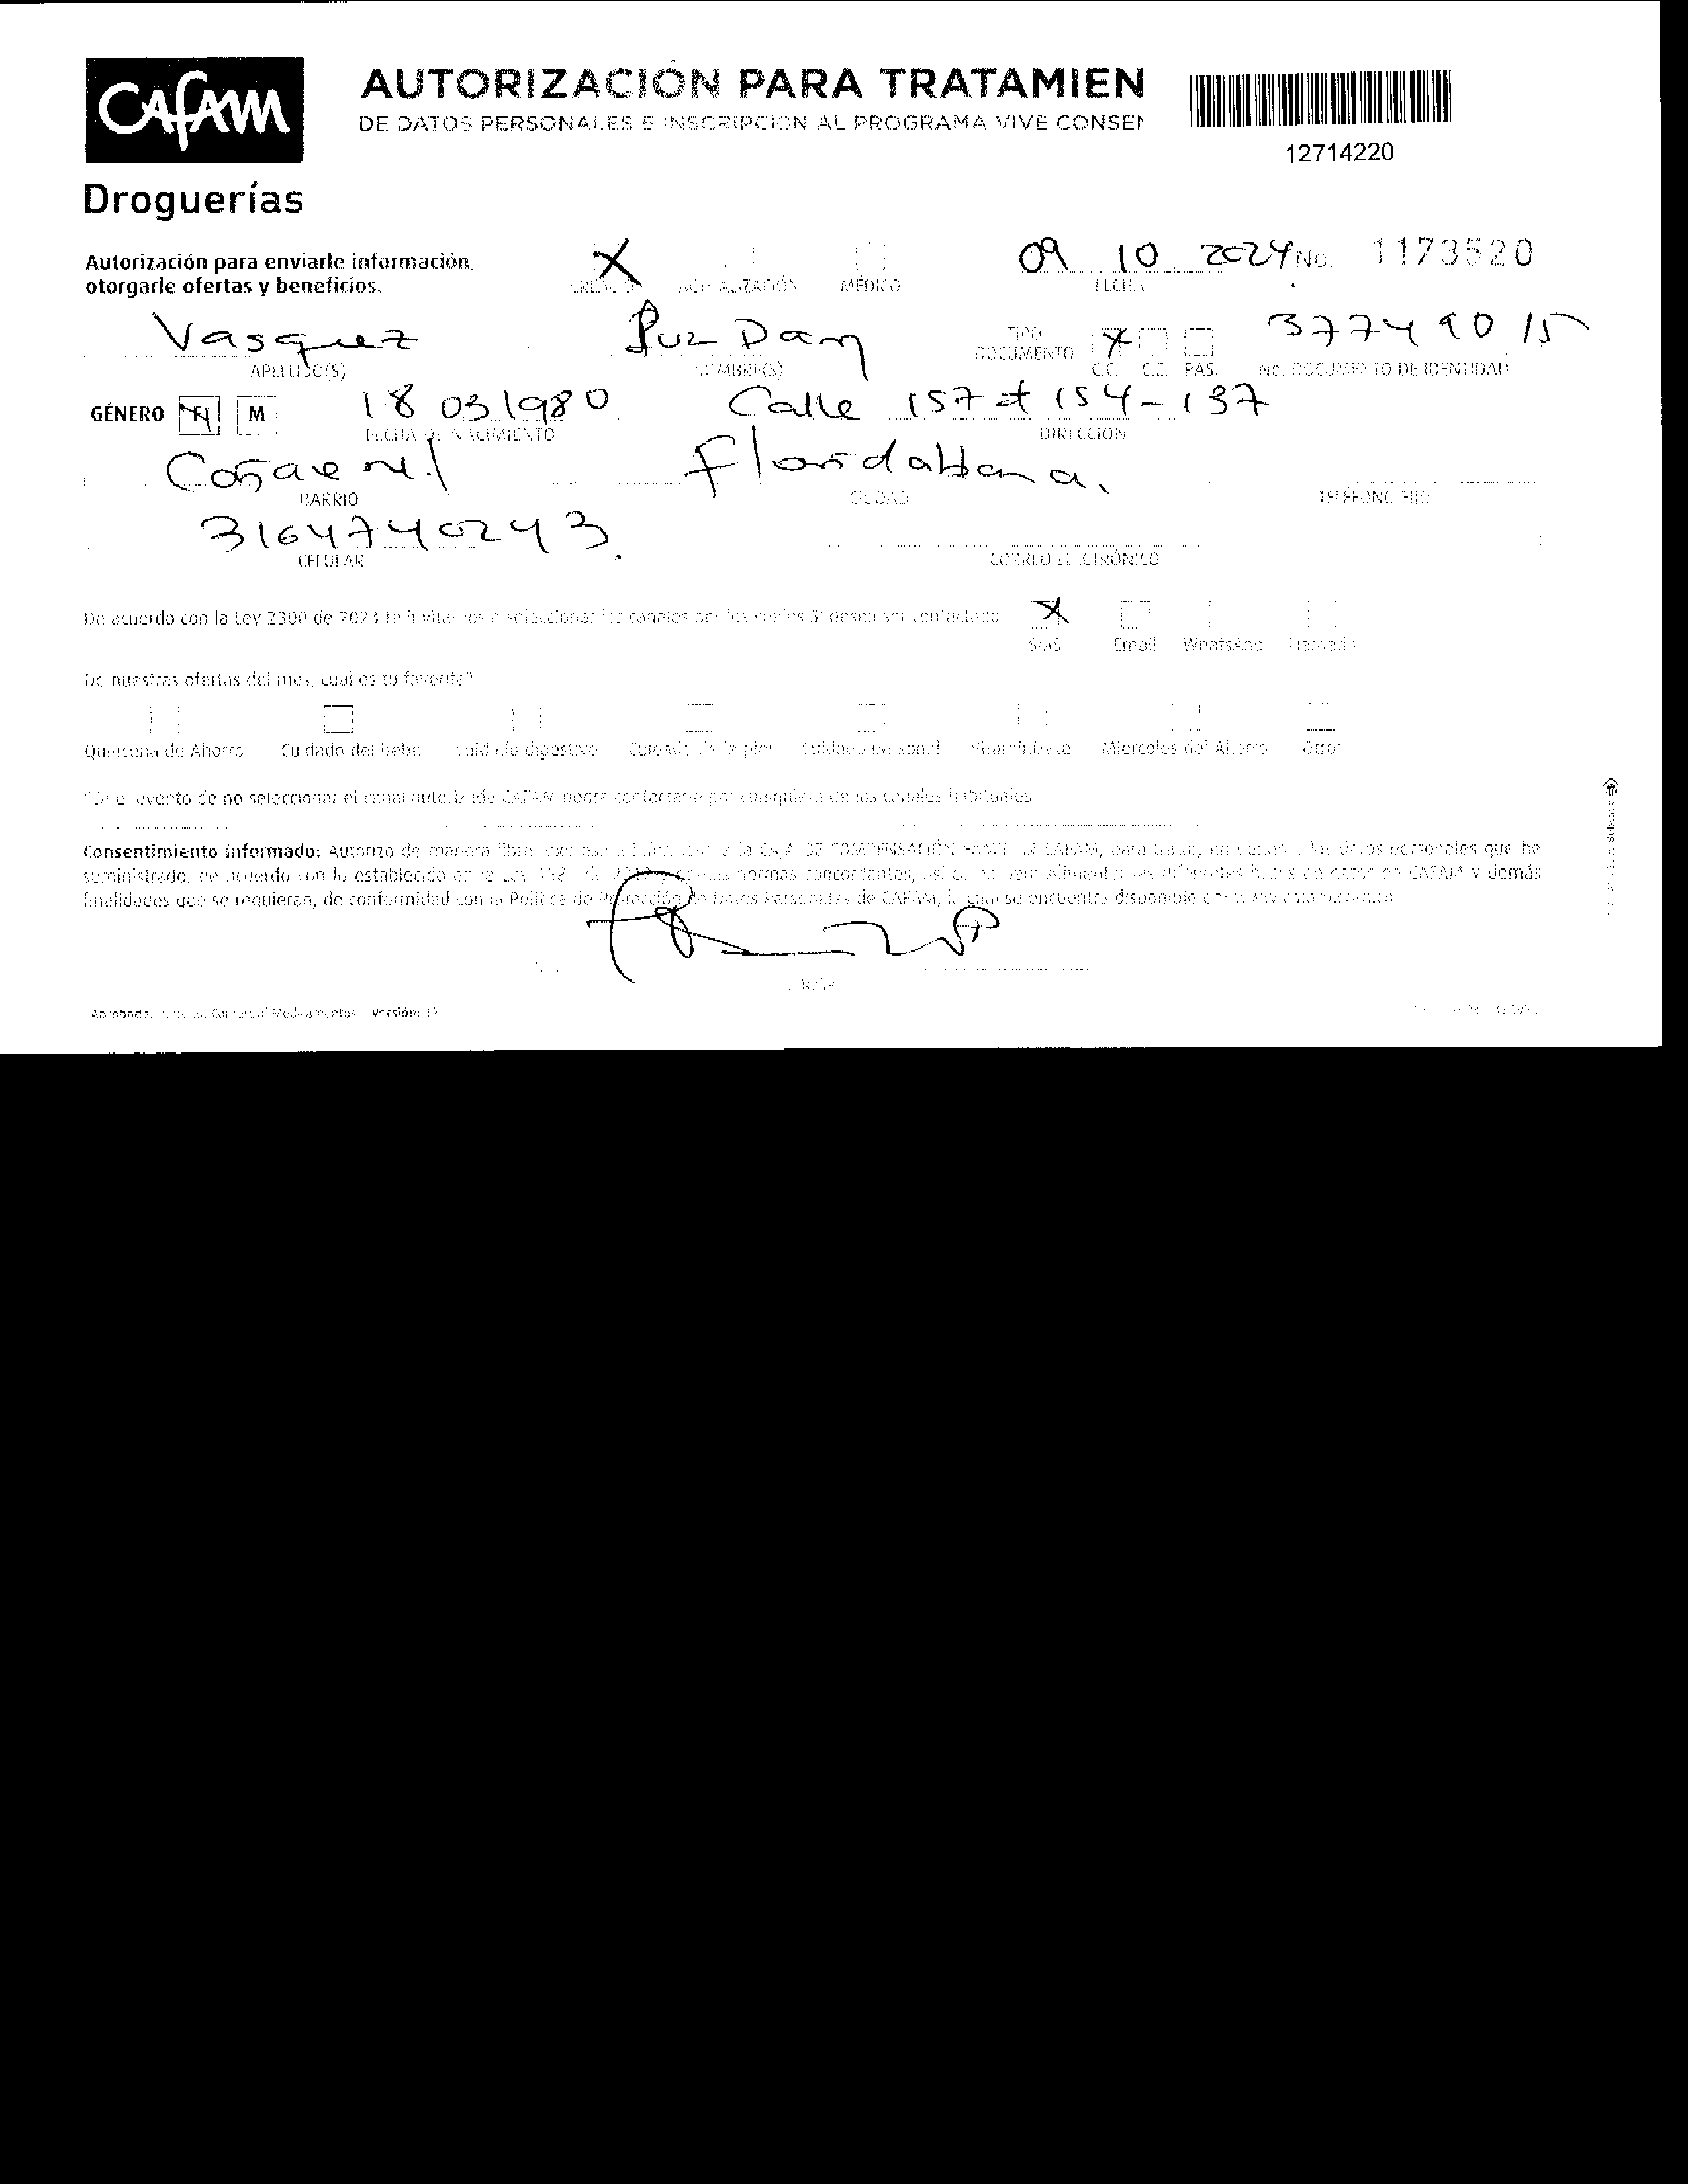 CAFAM
Droguerías
AUTORIZACIÓN PARA TRATAMIEN
DE DATOS PERSONALES E INSCRIPCIÓN AL PROGRAMA VIVE CONSEN
12714220
Autorización para enviarle información,
otorgarle ofertas y beneficios.
X
CREACIÓN ACTUALIZACIÓN MÉDICO
09 10 2024 No. 1173520
FECHA
Vasquez Luz Dary
APELLIDO(S) NOMBRE(S)
TIPO DOCUMENTO X C.C. C.E. PAS.
37749015
No. DOCUMENTO DE IDENTIDAD
GÉNERO F M 18 03 1980 Calle 157 # 154-137
FECHA DE NACIMIENTO DIRECCIÓN
Cañaveral Floridablanca.
BARRIO CIUDAD TELÉFONO FIJO
3164740243.
CELULAR CORREO ELECTRÓNICO
De acuerdo con la Ley 2300 de 2023 te invitamos a seleccionar los canales por los cuales SI desea ser contactado. X
SMS Email WhatsApp Llamada
De nuestras ofertas del mes, cual es tu favorita?
Quincena de Ahorro Cuidado del bebé Cuidado digestivo Cuidado de la piel Cuidado personal Vitamínizate Miércoles del Ahorro Otro:
*En el evento de no seleccionar el canal autorizado CAFAM podrá contactarle por cualquiera de los canales habituales.
Consentimiento informado: Autorizo de manera libre, expresa e informada a la CAJA DE COMPENSACIÓN FAMILIAR CAFAM, para tratar, en general, los datos personales que he
suministrado, de acuerdo con lo establecido en la Ley 1581 de 2012 y demás normas concordantes, así como para alimentar las diferentes bases de datos de CAFAM y demás
finalidades que se requieran, de conformidad con la Política de Protección de Datos Personales de CAFAM, la cual se encuentra disponible en: www.cafam.com.co
FIRMA
Aprobado: Comercial Medicamentos Versión: 12